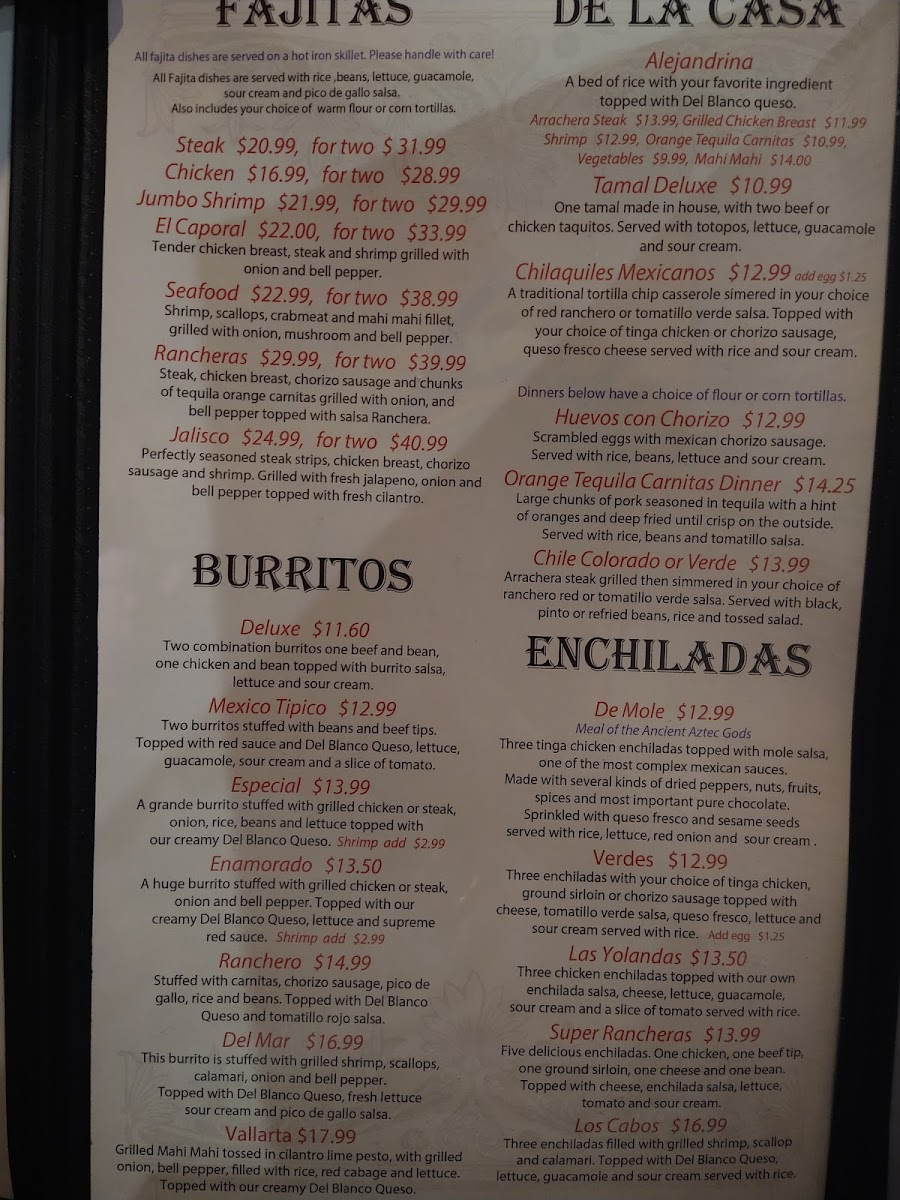 FAJITAS
All fajita dishes are served on a hot iron skillet. Please handle with care!
All Fajita dishes are served with rice ,beans, lettuce, guacamole,
sour cream and pico de gallo salsa.
Also includes your choice of warm flour or corn tortillas.
Steak $20.99, for two $ 31.99
Chicken $16.99, for two $28.99
Jumbo Shrimp $21.99, for two $29.99
El Caporal $22.00, for two $33.99
Tender chicken breast, steak and shrimp grilled with
onion and bell pepper.
Seafood $22.99, for two $38.99
Shrimp, scallops, crabmeat and mahi mahi fillet,
grilled with onion, mushroom and bell pepper.
Rancheras $29.99, for two $39.99
Steak, chicken breast, chorizo sausage and chunks
of tequila orange carnitas grilled with onion, and
bell pepper topped with salsa Ranchera.
Jalisco $24.99, for two $40.99
Perfectly seasoned steak strips, chicken breast, chorizo
sausage and shrimp. Grilled with fresh jalapeno, onion and
bell pepper topped with fresh cilantro.
BURRITOS
Deluxe $11.60
Two combination burritos one beef and bean,
one chicken and bean topped with burrito salsa,
lettuce and sour cream.
Mexico Tipico $12.99
Two burritos stuffed with beans and beef tips.
Topped with red sauce and Del Blanco Queso, lettuce,
guacamole, sour cream and a slice of tomato.
Especial $13.99
A grande burrito stuffed with grilled chicken or steak,
onion, rice, beans and lettuce topped with
our creamy Del Blanco Queso. Shrimp add $2.99
Enamorado $13.50
A huge burrito stuffed with grilled chicken or steak,
onion and bell pepper. Topped with our
creamy Del Blanco Queso, lettuce and supreme
red sauce. Shrimp add $2.99
Ranchero $14.99
Stuffed with carnitas, chorizo sausage, pico de
gallo, rice and beans. Topped with Del Blanco
Queso and tomatillo rojo salsa.
Del Mar $16.99
This burrito is stuffed with grilled shrimp, scallops,
calamari, onion and bell pepper.
Topped with Del Blanco Queso, fresh lettuce
sour cream and pico de gallo salsa.
Vallarta $17.99
Grilled Mahi Mahi tossed in cilantro lime pesto, with grilled
onion, bell pepper, filled with rice, red cabage and lettuce.
Topped with our creamy Del Blanco Queso.
DE LA CASA
Alejandrina
A bed of rice with your favorite ingredient
topped with Del Blanco queso.
Arrachera Steak $13.99, Grilled Chicken Breast $11.99
Shrimp $12.99, Orange Tequila Carnitas $10.99,
Vegetables $9.99, Mahi Mahi $14.00
Tamal Deluxe $10.99
One tamal made in house, with two beef or
chicken taquitos. Served with totopos, lettuce, guacamole
and sour cream.
Chilaquiles Mexicanos $12.99 add egg $1.25
A traditional tortilla chip casserole simered in your choice
of red ranchero or tomatillo verde salsa. Topped with
your choice of tinga chicken or chorizo sausage,
queso fresco cheese served with rice and sour cream.
Dinners below have a choice of flour or corn tortillas.
Huevos con Chorizo $12.99
Scrambled eggs with mexican chorizo sausage.
Served with rice, beans, lettuce and sour cream.
Orange Tequila Carnitas Dinner $14.25
Large chunks of pork seasoned in tequila with a hint
of oranges and deep fried until crisp on the outside.
Served with rice, beans and tomatillo salsa.
Chile Colorado or Verde $13.99
Arrachera steak grilled then simmered in your choice of
ranchero red or tomatillo verde salsa. Served with black,
pinto or refried beans, rice and tossed salad.
ENCHILADAS
De Mole $12.99
Meal of the Ancient Aztec Gods
Three tinga chicken enchiladas topped with mole salsa,
one of the most complex mexican sauces.
Made with several kinds of dried peppers, nuts, fruits,
spices and most important pure chocolate.
Sprinkled with queso fresco and sesame seeds
served with rice, lettuce, red onion and sour cream .
Verdes $12.99
Three enchiladas with your choice of tinga chicken,
ground sirloin or chorizo sausage topped with
cheese, tomatillo verde salsa, queso fresco, lettuce and
sour cream served with rice. Add egg $1.25
Las Yolandas $13.50
Three chicken enchiladas topped with our own
enchilada salsa, cheese, lettuce, guacamole,
sour cream and a slice of tomato served with rice.
Super Rancheras $13.99
Five delicious enchiladas. One chicken, one beef tip,
one ground sirloin, one cheese and one bean.
Topped with cheese, enchilada salsa, lettuce,
tomato and sour cream.
Los Cabos $16.99
Three enchiladas filled with grilled shrimp, scallop
and calamari. Topped with Del Blanco Queso,
lettuce, guacamole and sour cream served with rice.